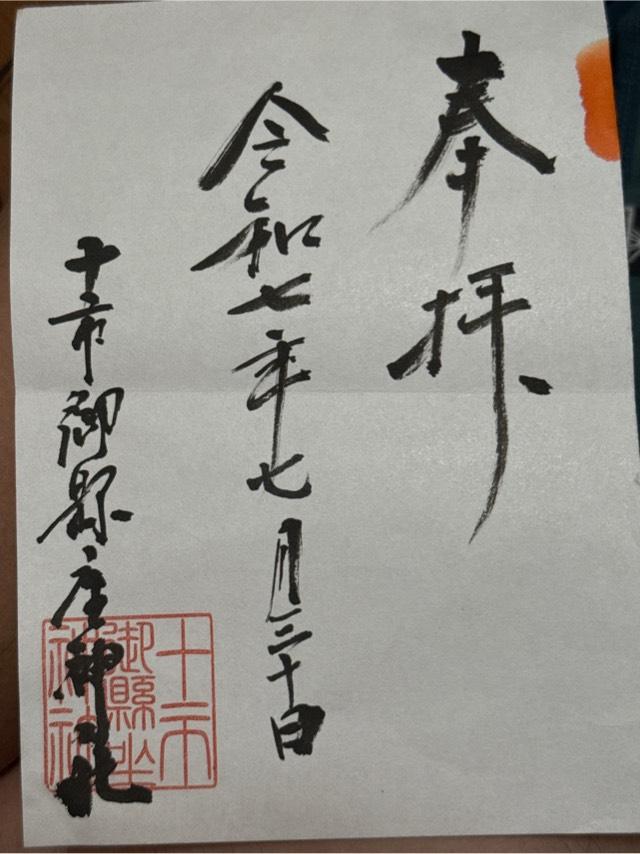 奉拝
令和七年七月三十日
十市御縣座神社
十市
御縣坐
神社